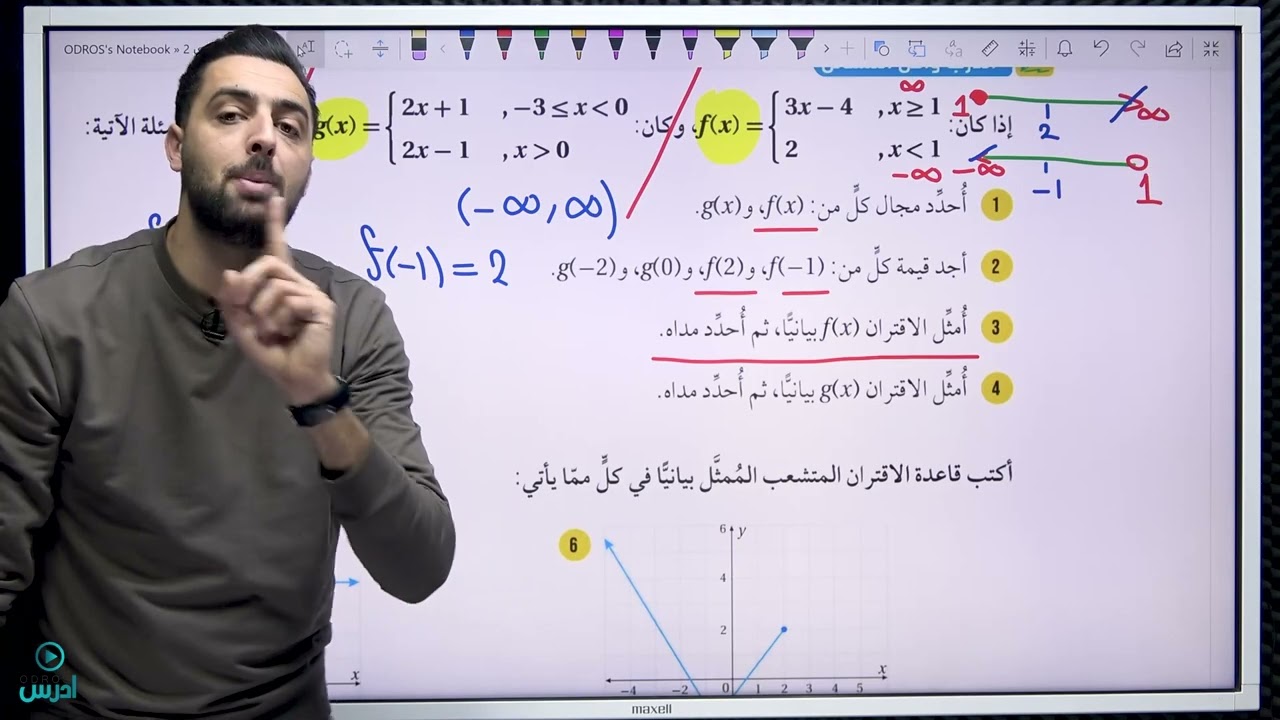 ODROS's Notebook »
إذا كان: f(x) = { 3x − 4 , x ≥ 1
2 , x < 1
، وكان: g(x) = { 2x + 1 , −3 ≤ x < 0
2x − 1 , x > 0
الآتية:
∞
−∞
1 2 ∞
−∞ −1 1
1 أُحدِّد مجال كلٍّ من: f(x)، وg(x).
(−∞, ∞)
2 أجد قيمة كلٍّ من: f(−1)، وf(2)، وg(0)، وg(−2).
f(−1) = 2
3 أُمثِّل الاقتران f(x) بيانيًّا، ثم أُحدِّد مداه.
4 أُمثِّل الاقتران g(x) بيانيًّا، ثم أُحدِّد مداه.
أكتب قاعدة الاقتران المتشعب المُمثَّل بيانيًّا في كلٍّ ممّا يأتي:
6
y
6
4
2
x
−4 −2 0 1 2 3 4 5
x
ODROS
ادرس
maxell